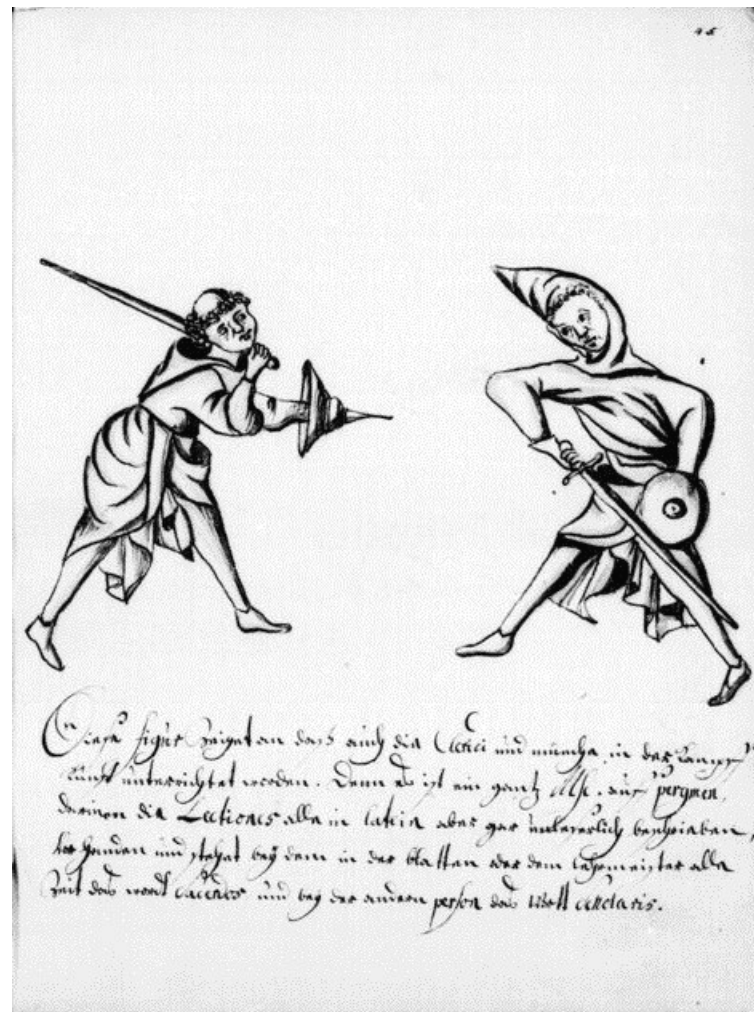 95
Diese figur Zeiget an daß auch die Clerici und münche in der Kampf
Kunst unterrichtet worden. Denn es ist ein gantz Msc. auf pergmen,
darinnen die Lectiones alle in latein aber gar unleserlich beschrieben,
vor handen und stehet bey dem in der blatten oder dem Lehrmeister alle
Zeit das wordt Sacerdos und bey der andern person das Wortt